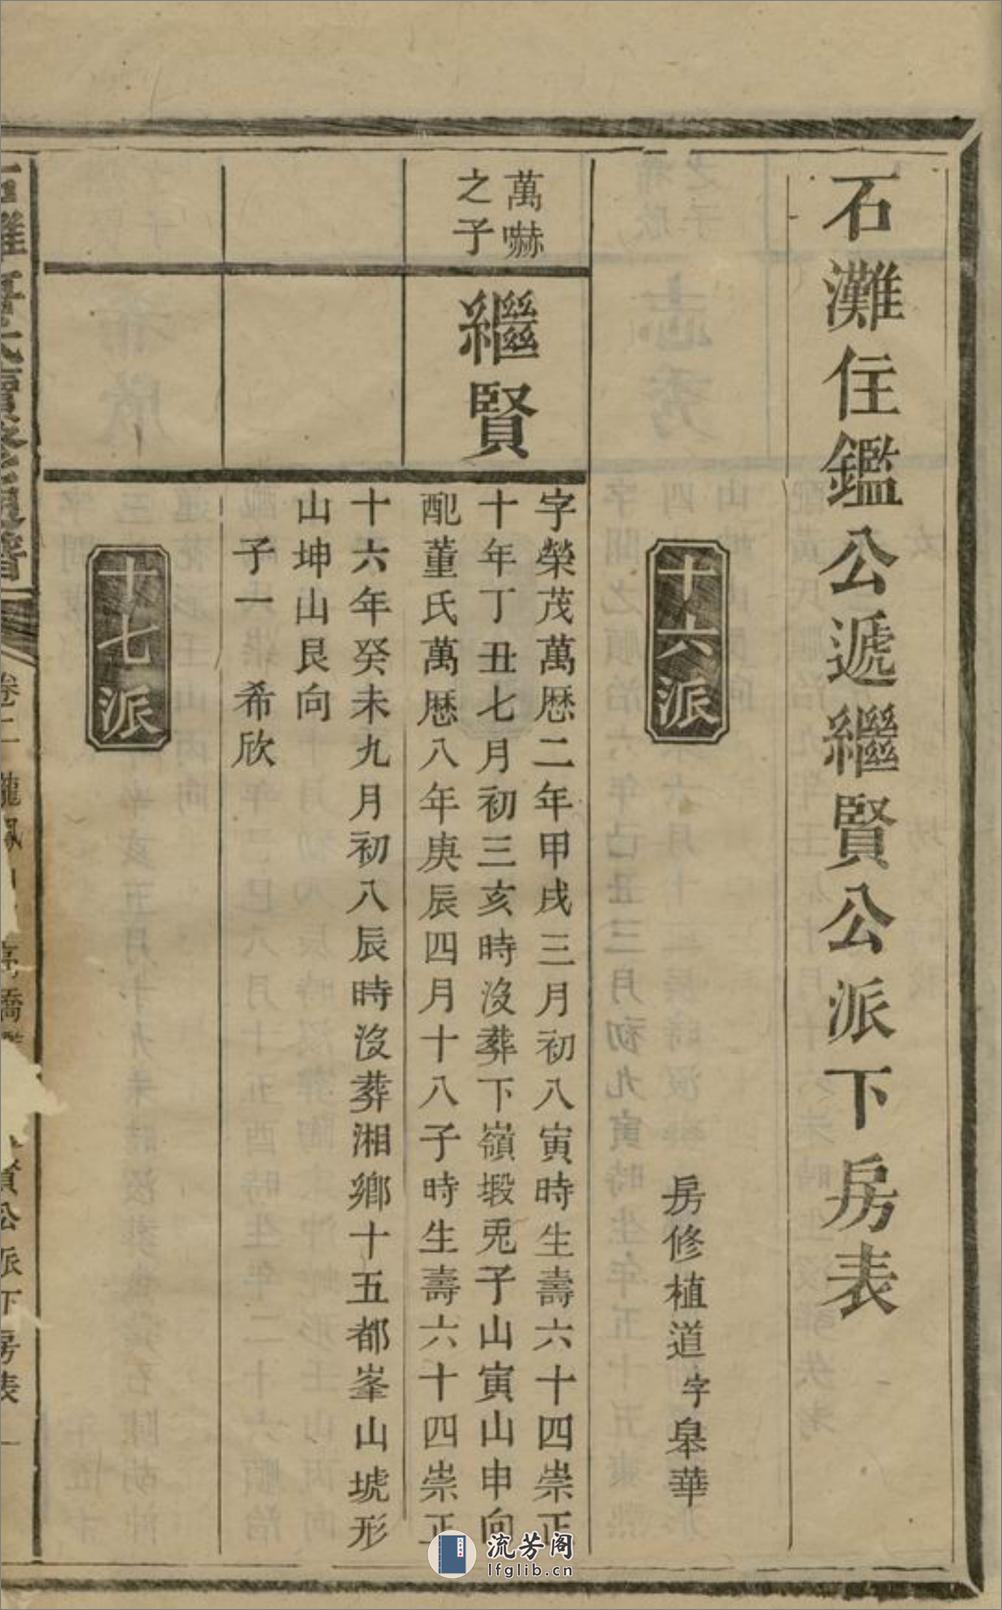 石灘住鑑公遞繼賢公派下房表
十六派
房修植道字皋華
萬嚇
之子
繼賢
字榮茂萬厯二年甲戌三月初八寅時生壽六十四崇正
十年丁丑七月初三亥時沒葬下嶺塅兎子山寅山申向
配董氏萬厯八年庚辰四月十八子時生壽六十四崇正
十六年癸未九月初八辰時沒葬湘鄉十五都峯山琥形
山坤山艮向
子一 希欣
十七派
卷二
賢公派下房表 一
流芳阁
lfglib.cn